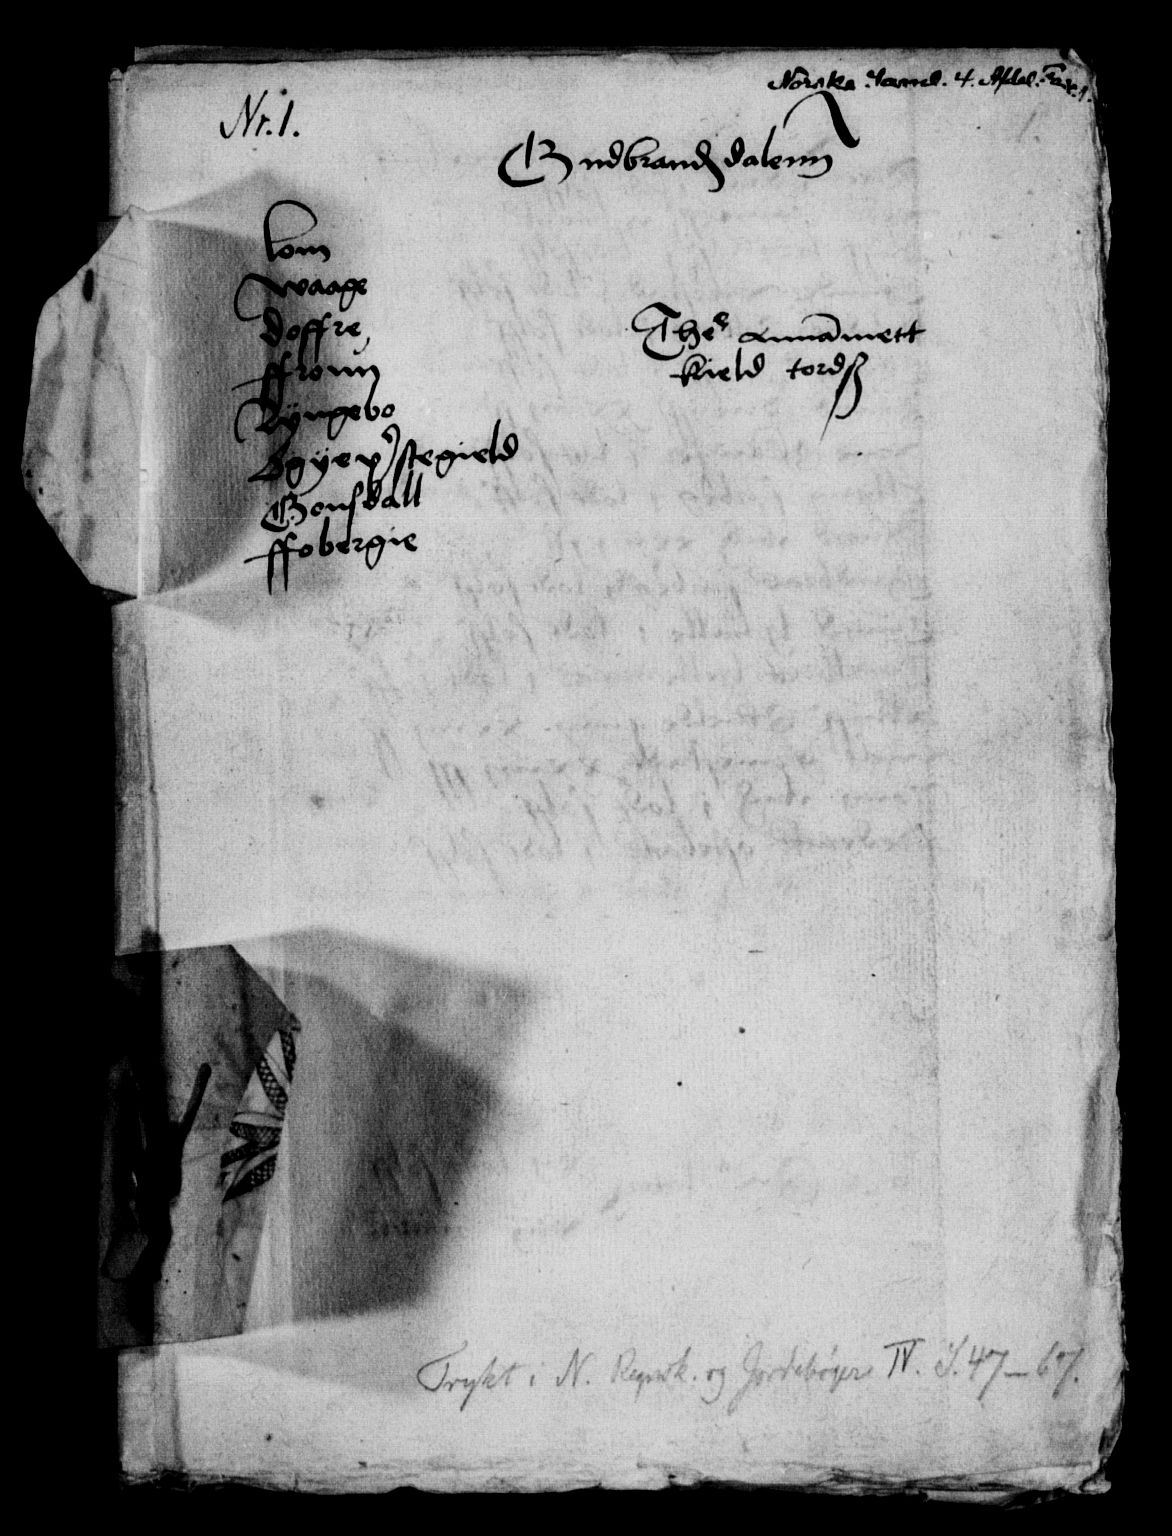 Norske Samml. 4. Afdel.
Nr. 1.
Gudbrandsdalenn
lom
waage
Doffre
ffronn
Ryngebo
Øyye prestegield
Gousdall
ffobergie
Ther annamett
kield tordß
Trykt i N. Regnsk. og Jordebøger IV. S. 47–67.